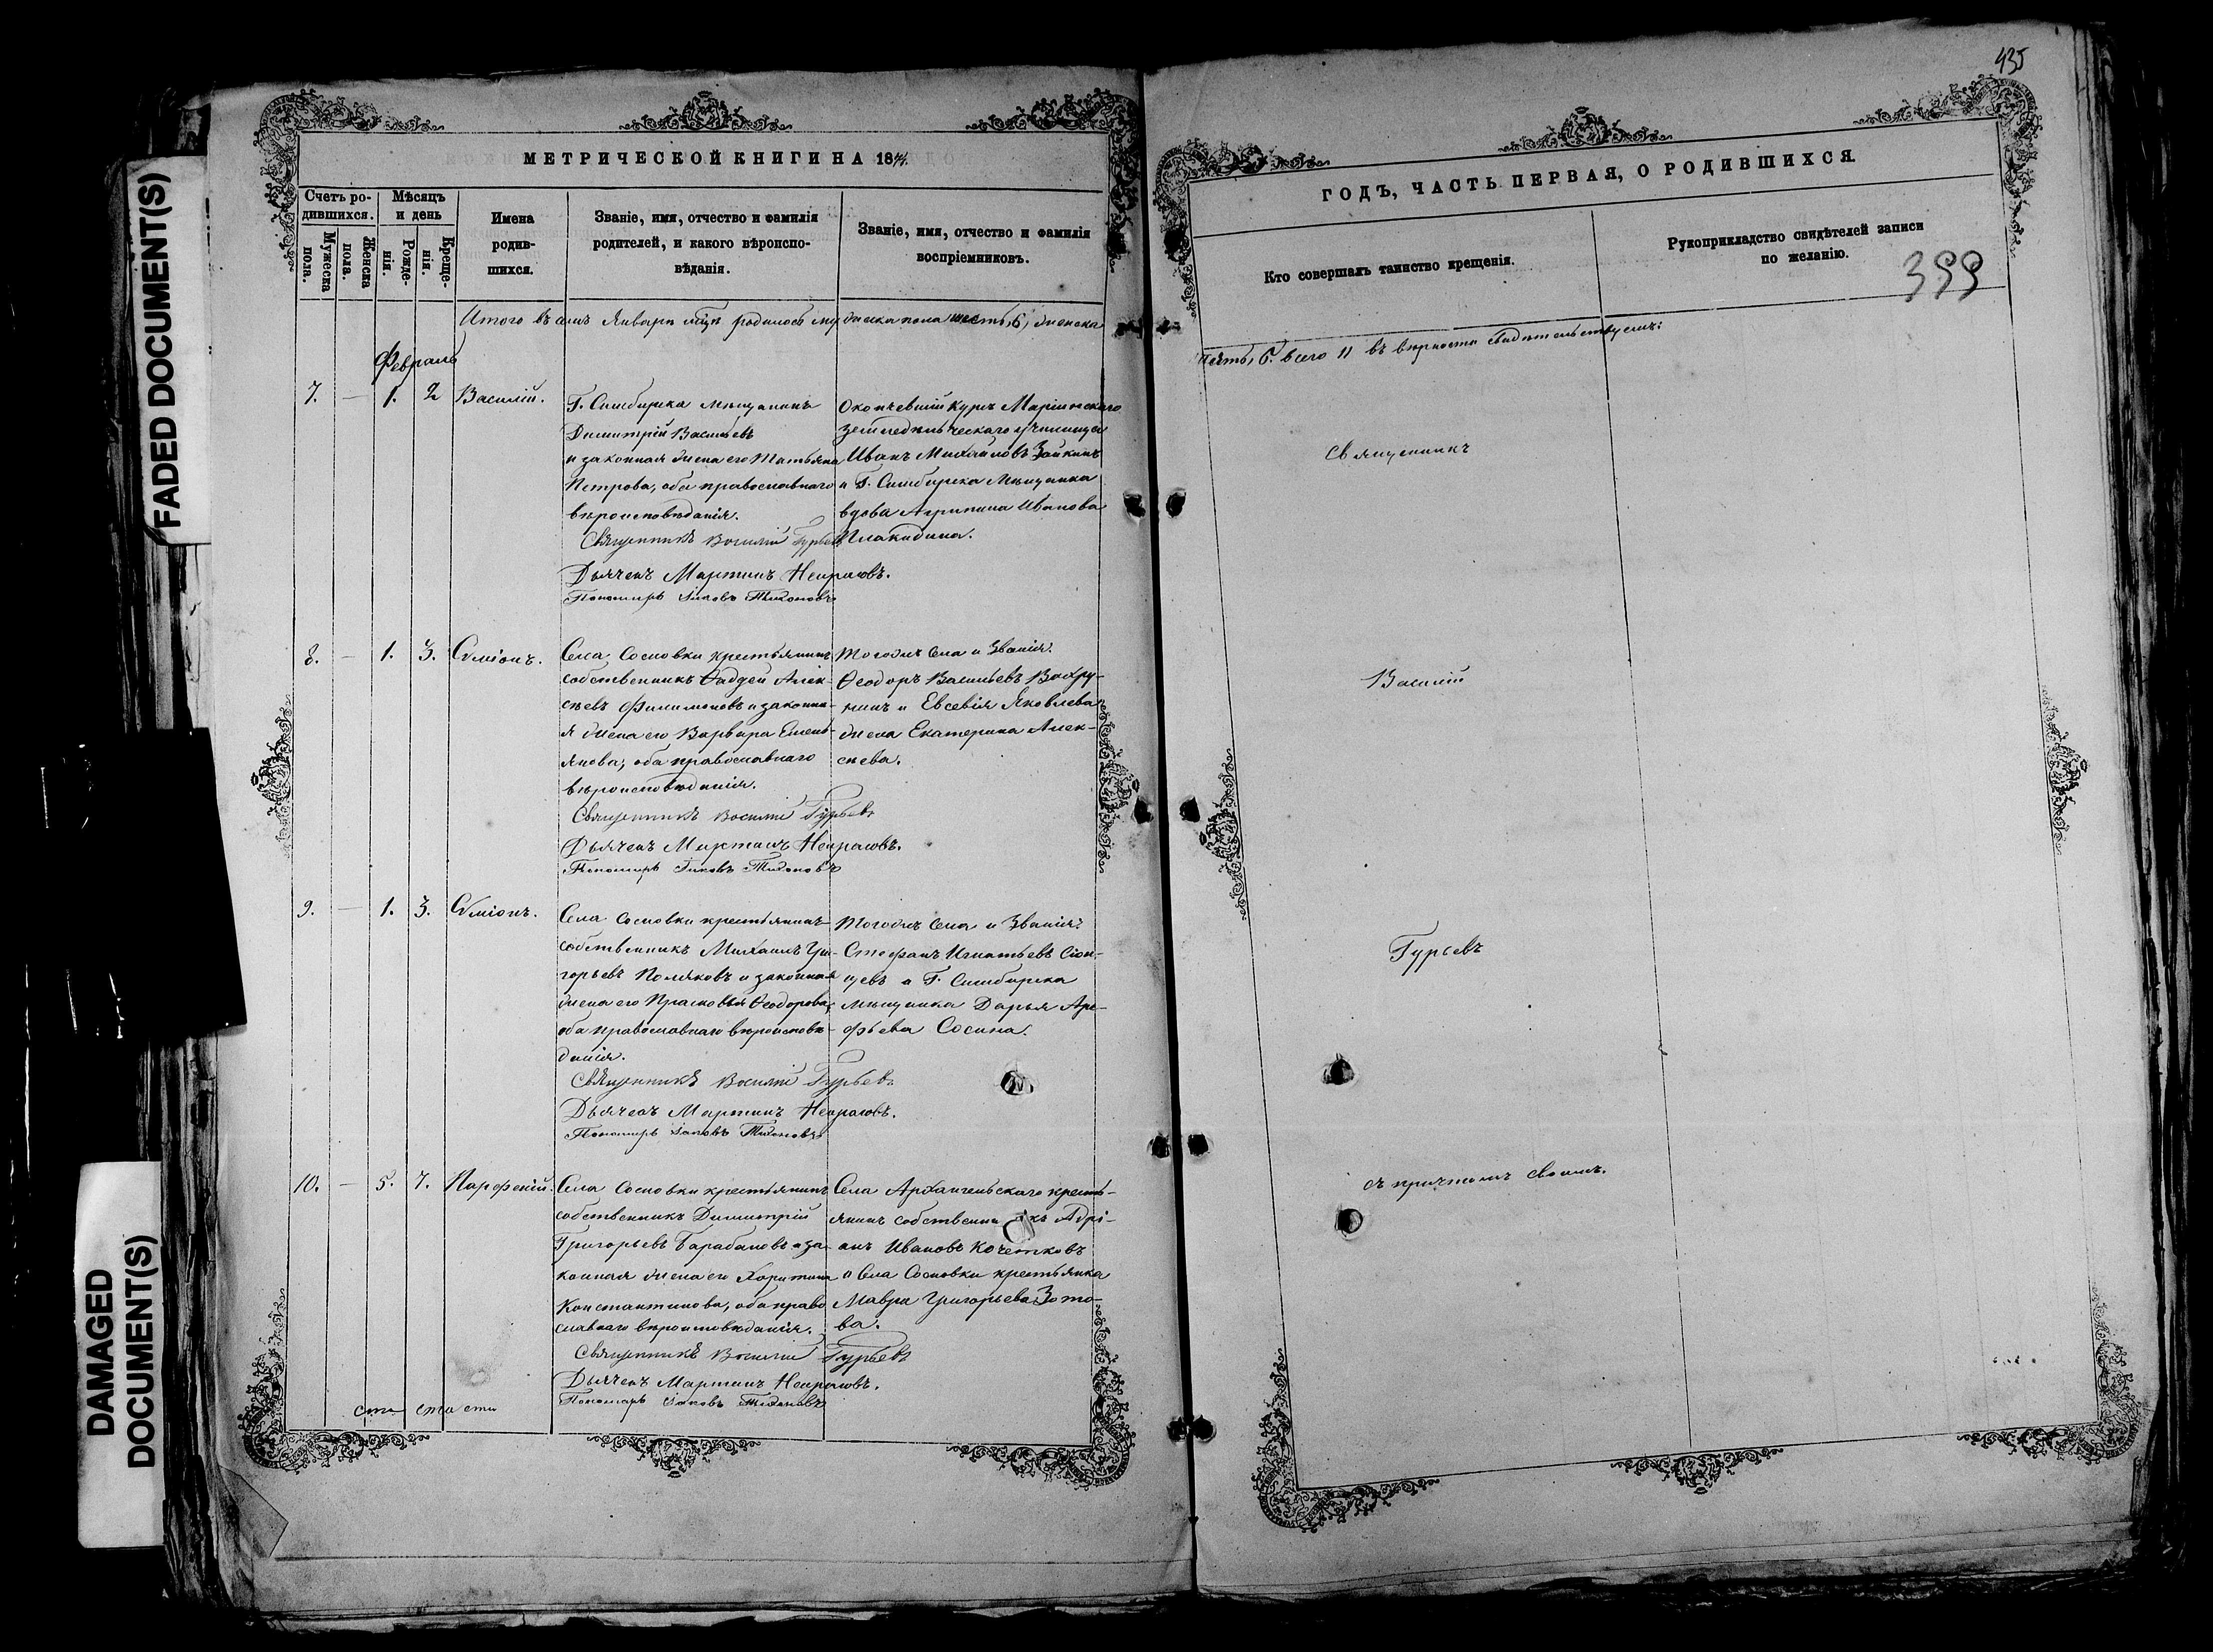 435
FADED DOCUMENT(S)
DAMAGED
DOCUMENT(S)
МЕТРИЧЕСКОЙ КНИГИ НА 18
Счетъ ро-
дившихся.
Мужеска
пола.
Женска
пола.
Мѣсяцъ
и день
Рожде-
нія.
Креще-
нія.
Имена
родив-
шихся.
Званіе, имя, отчество и фамилія
родителей, и какого вѣроиспо-
вѣданія.
Званіе, имя, отчество и фамилія
воспріемниковъ.
Итого въ семъ Январѣ мцѣ родилось мужеска пола шесть, 6, женска
Февраль
7. — 1. 2 Василій.
Г. Симбирска мѣщанинъ
Димитрій Васильевъ
и законная жена его Татьяна
Петрова, оба православнаго
вѣроисповѣданія.
Священникъ Василій Гурьевъ
Дьячекъ Мартинъ Некрасовъ.
Пономарь Іаковъ Тихоновъ
Окончевшій курсъ Маріинскаго
земледѣльческаго училища
Иванъ Михайловъ Зайкинъ
и Г. Симбирска мѣщанка
вдова Агрипина Иванова
Плакидина.
8. — 1. 3. Сѵміонъ.
Села Сосновки крестьянинъ
собственникъ Ѳаддей Алек-
сѣевъ Филимоновъ и законна-
я жена его Варвара Емель-
янова, оба православнаго
вѣроисповѣданія.
Священникъ Василій Гурьевъ
Дьячекъ Мартинъ Некрасовъ.
Пономарь Іаковъ Тихоновъ
Тогожъ села и званія
Ѳеодоръ Васильевъ Вахру-
нинъ и Евсевія Яковлева
жена Екатерина Алек-
сѣева.
9. — 1. 3. Сѵміонъ.
Села Сосновки крестьянинъ
собственникъ Михаилъ Гри-
горьевъ Поляковъ и законная
жена его Прасковья Ѳеодорова,
оба православнаго вѣроисповѣ-
данія.
Священникъ Василій Гурьевъ
Дьячекъ Мартинъ Некрасовъ.
Пономарь Іаковъ Тихоновъ
Тогожъ села и званія
Стефанъ Игнатьевъ
и Г. Симбирска
мѣщанка Дарья Аре-
фьева Сосина.
10. — 5. 7. Парфеній.
Села Сосновки крестьянинъ
собственникъ Димитрій
Григорьевъ Барабановъ и за-
конная жена его Харитина
Константинова, оба право
славнаго вѣроисповѣданія.
Священникъ Василій Гурьевъ
Дьячекъ Мартинъ Некрасовъ.
Пономарь Іаковъ Тихоновъ
Села Архангельскаго кресть-
янинъ собственникъ Адрі-
анъ Ивановъ Кочетковъ
и Села Сосновки крестьянка
Мавра Григорьева Зото-
ва.
ГОДЪ, ЧАСТЬ ПЕРВАЯ, О РОДИВШИХСЯ.
Кто совершалъ таинство крещенія.
Рукоприкладство свидѣтелей записи
по желанію.
399
пять, 5. всего 11 въ вѣрности свидѣтельствуемъ:
Священникъ
Василій
Гурьевъ
съ причтомъ своимъ.